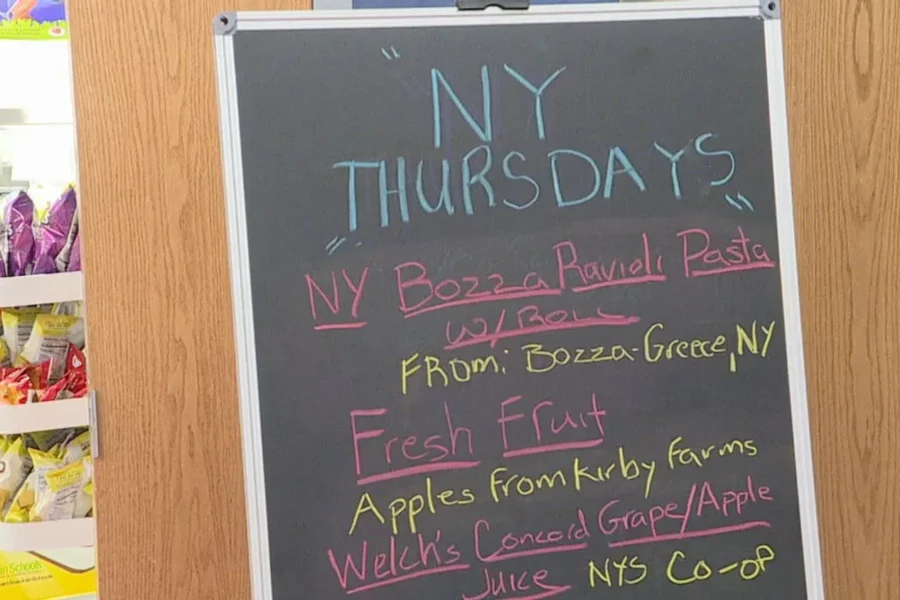 "NY
THURSDAYS"
NY Bozza Ravioli Pasta
W/ Roll
FROM: Bozza-Greece, NY
Fresh Fruit
Apples From Kirby Farms
Welch's Concord Grape/Apple
Juice NYS Co-op
in Schools